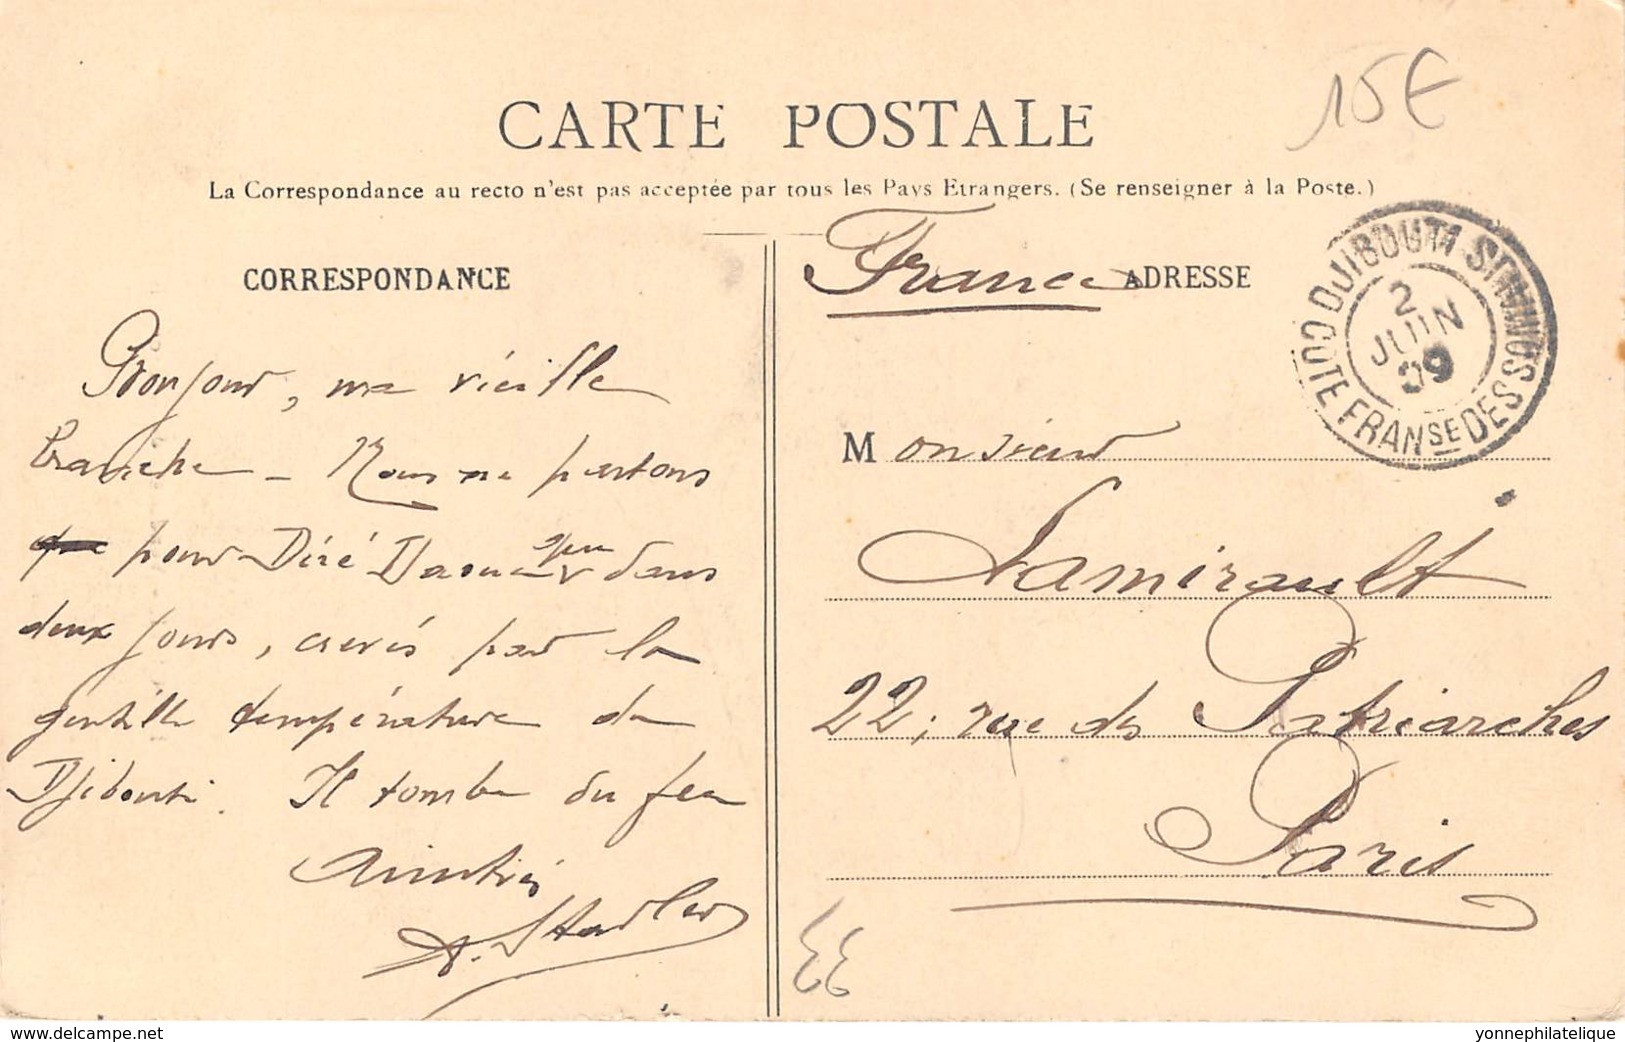 15€
CARTE POSTALE
La Correspondance au recto n'est pas acceptée par tous les Pays Etrangers. (Se renseigner à la Poste.)
CORRESPONDANCE
Bonjour, ma vieille
branche – Nous ne partons
pour Diré Daoua que dans
deux jours, crevés par la
gentille température de
Djibouti. Il tombe du feu
Amitiés
A. Stadler
France
ADRESSE
Monsieur
Lamirault
22, rue des Patriarches
Paris
DJIBOUTI
2
JUIN
09
COTE FRANSE DES SOMALIS
33
www.delcampe.net
yonnephilatelique